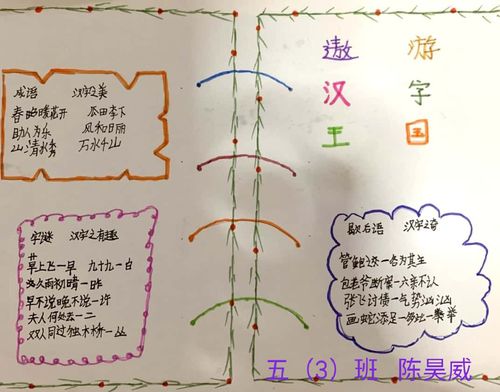 成语 汉字之美
春暖花开 瓜田李下
助人为乐 风和日丽
山清水秀 万水千山
字谜 汉字之有趣
早上飞一早 九十九一白
多久雨初晴一昨
早不说晚不说一许
夫人何处去一二
双人同过独木桥一丛
遨游
汉字
王国
歇后语 汉字之奇
管鲍之交一各为其主
包老爷断案一六亲不认
张飞讨债一气势汹汹
画蛇添足一多此一举
五（3）班 陈昊威